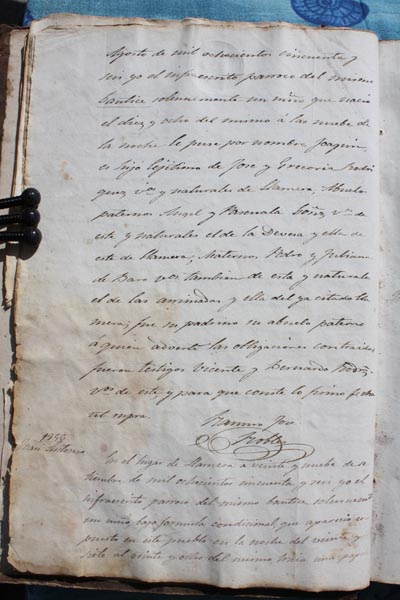 Agosto de mil ochocientos cincuenta y
seis yo el infraescrito parroco del mismo
bautice solemnemente un niño que nació
el diez y ocho del mismo á las nuebe de
la noche le puse por nombre Joaquin
es hijo lejitimo de Jose y Gregoria Rodri
guez vos y naturales de Llamera, Abuelos
paternos Angel y Pascuala vos de
este y naturales el de la Devesa y ella de
este de Llamera; Maternos Pedro y Juliana
de Baro vos tambien de este y naturale
el de las arrimadas y ella del ya citado Lla
mera; fue su padrino su abuelo paterno
a quien adverti las obligaciones contraidas
fueron testigos Vicente y Bernardo
vos de este y para que conste lo firmo fecha
ut supra.
Ramiro Jose
Robles
1856
En el lugar de Llamera a veinte y nuebe de se
tiembre de mil ochocientos cincuenta y seis yo el
infraescrito parroco del mismo bautice solemnemente
un niño bajo formula condicional que aparecio es
puesto en este pueblo en la noche del veinte y
siete al veinte y ocho del mismo traia una